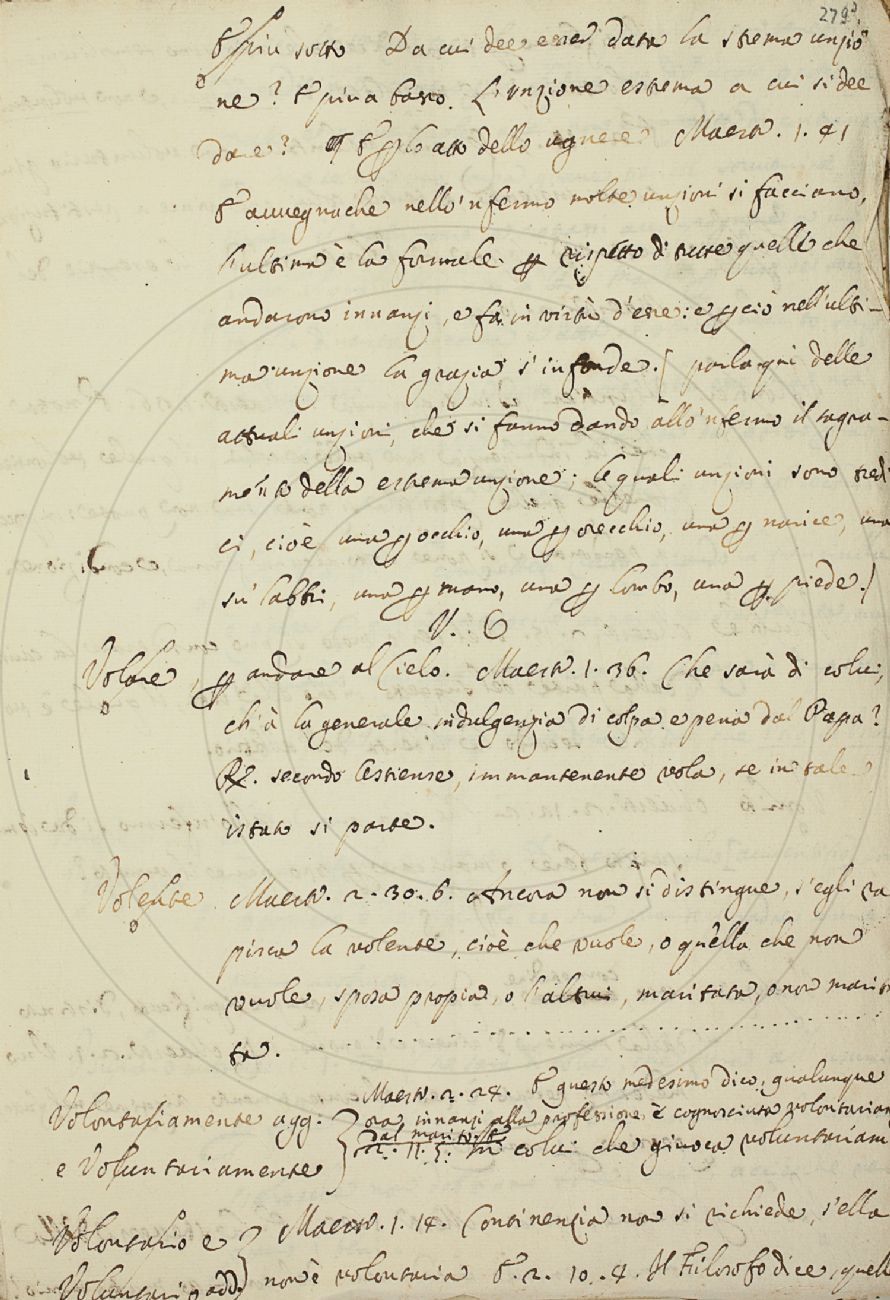 279
E più sotto Da cui dee esser data la strema unzio
ne? E più a basso. L'unzione estrema a cui si dee
dare? E p lo atto dello ugnere Maestr. 1. 41
E avvegnache nello 'nfermo molte unzioni si facciano,
l'ultima è la formale p rispetto di tutte quelle che
andarono innanzi, e fa in virtù d'esse: e p ciò nell'ulti-
ma unzione la grazia s'infonde. [ parla qui delle
attuali unzioni, che si fanno dando allo 'nfermo il sagra-
mento della estrema unzione; le quali unzioni sono tredi
ci, cioè una p occhio, una p orecchio, una p narice, una
su' labbri, una p mano, una p lombo, una p piede. ]
V. 6
Volare, p andare al Cielo. Maestr. 1. 36. Che sarà di colui,
ch'à la generale indulgenzia di colpa e pena dal Papa?
R. secondo l'estiense, immantenente vola, se in tale
istato si parte.
Volente Maestr. 2. 30. 6. Ancora non si distingue, s'egli ra
pisca la volente, cioè che vuole, o quella che non
vuole, sposa propia, o l'altrui, maritata, o non marita
ta.
Volontariamente agg. Maestr. 2. 24. E questo medesimo dico, qualunque
ora innanzi alla professione è cognosciuta volontariam
dal marito. E
e Voluntariamente 2. 11. 5. In colui che giuoca voluntariam
Volontario e Maestr. 1. 14. Continenzia non si richiede, s'ella
Voluntario add. non è volontaria E. 2. 10. 4. Il Filosofo dice, quell